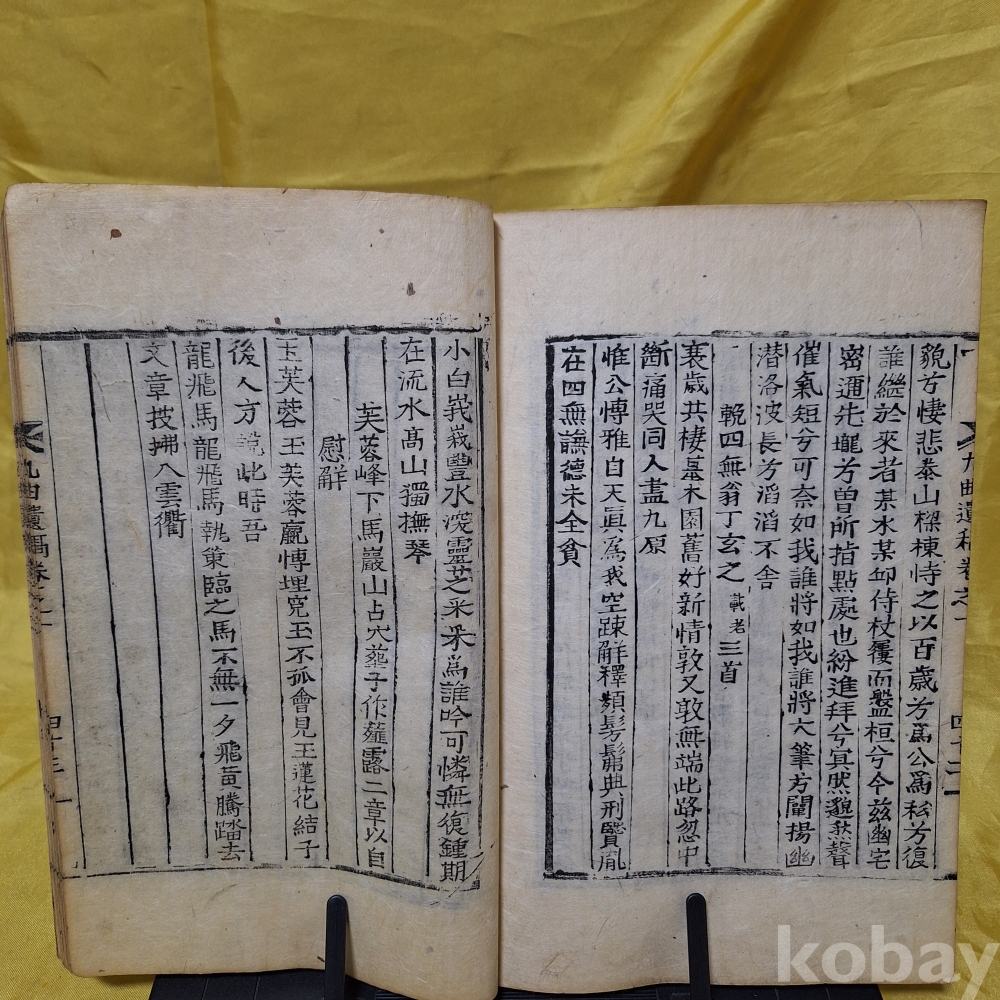 九曲遺稿卷之一
四十二
貌兮悽悲泰山樑棟恃之以百歲兮爲公爲私兮復
誰繼於來者某水某邱侍杖屨而盤桓兮今玆幽宅
密邇先壠兮曽所指點處也紛進拜兮冥然邈然聲
催氣短兮可奈如我誰將如我誰將大筆兮闡揚幽
潜洛波長兮滔滔不舍
輓四無翁丁玄之 載老 三首
衰歲共棲墓木園舊好新情敦又敦無端此路忽中
斷痛哭同人盡九原
惟公博雅自天眞爲我空踈解釋頻髣髴典刑賢胤
在四無謙德未全貧
小白峩峩豐水深靈芝采采爲誰吟可憐無復鍾期
在流水高山獨撫琴
芙蓉峰下馬巖山占穴葬子作薤露二章以自
慰觧
玉芙蓉玉芙蓉嬴博埋寃玉不孤會見玉蓮花結子
後人方 此時吾
龍飛馬龍飛馬執策臨之馬不無一夕飛黃騰踏去
文章技拂八雲衢
九曲遺稿卷之一
四十三
kobay